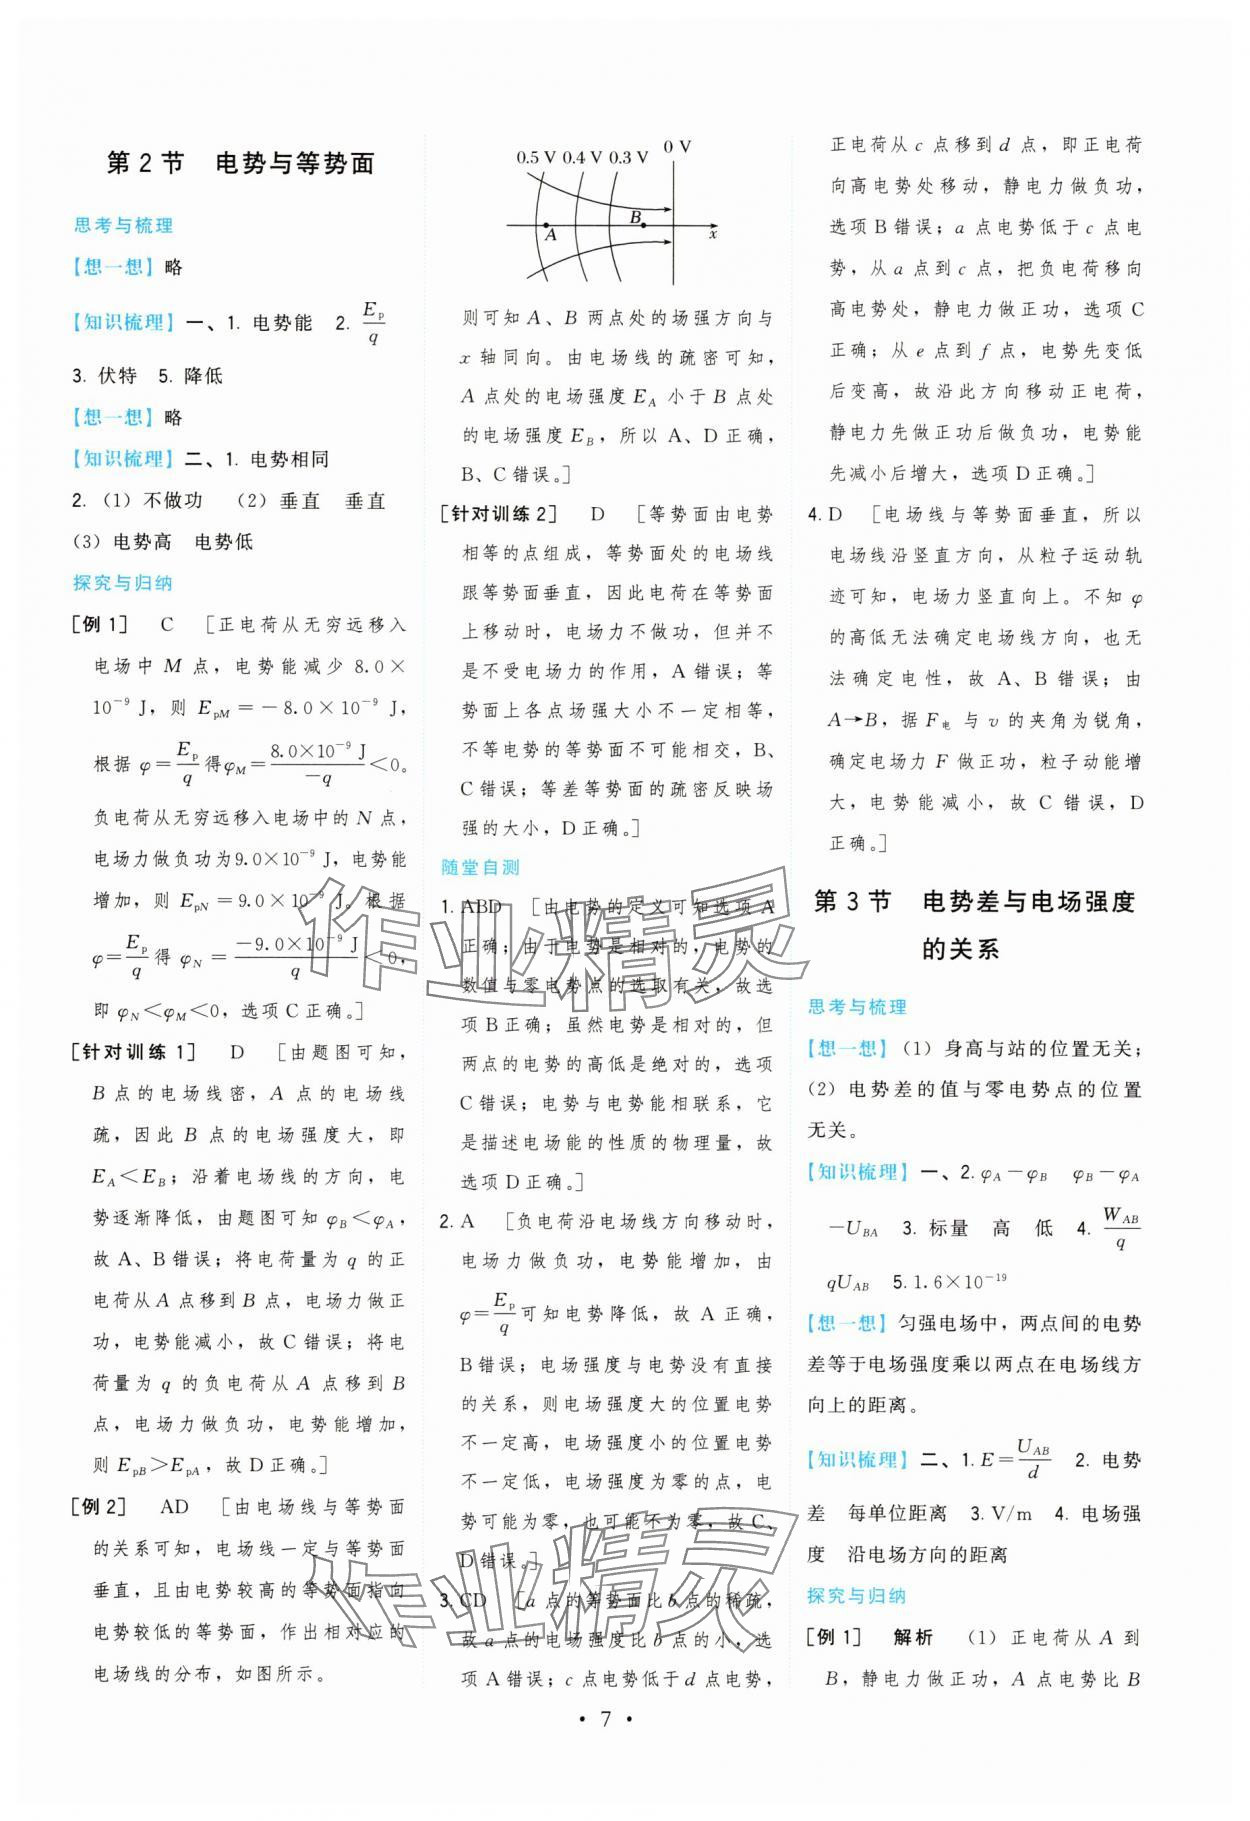 第2节 电势与等势面
思考与梳理
【想一想】略
【知识梳理】一、1. 电势能 2. Ep/q
3. 伏特 5. 降低
【想一想】略
【知识梳理】二、1. 电势相同
2.（1）不做功 （2）垂直 垂直
（3）电势高 电势低
探究与归纳
[例1] C [正电荷从无穷远移入
电场中 M 点，电势能减少 8.0×
10⁻⁹ J，则 EpM＝－8.0×10⁻⁹ J，
根据 φ＝Ep/q 得φM＝8.0×10⁻⁹ J/－q＜0。
负电荷从无穷远移入电场中的 N 点，
电场力做负功为9.0×10⁻⁹ J，电势能
增加，则 EpN＝9.0×10⁻⁹ J。根据
φ＝Ep/q 得 φN＝－9.0×10⁻⁹ J/q＜0，
即 φN＜φM＜0，选项C正确。]
[针对训练1] D [由题图可知，
B 点的电场线密，A 点的电场线
疏，因此 B 点的电场强度大，即
EA＜EB；沿着电场线的方向，电
势逐渐降低，由题图可知 φB＜φA，
故 A、B 错误；将电荷量为 q 的正
电荷从A点移到B点，电场力做正
功，电势能减小，故 C 错误；将电
荷量为 q 的负电荷从 A 点移到 B
点，电场力做负功，电势能增加，
则 EpB＞EpA，故D正确。]
[例2] AD [由电场线与等势面
的关系可知，电场线一定与等势面
垂直，且由电势较高的等势面指向
电势较低的等势面，作出相对应的
电场线的分布，如图所示。
0 V
0.5 V 0.4 V 0.3 V
A B x
则可知 A、B 两点处的场强方向与
x 轴同向。由电场线的疏密可知，
A 点处的电场强度 EA 小于 B 点处
的电场强度 EB，所以 A、D 正确，
B、C 错误。]
[针对训练2] D [等势面由电势
相等的点组成，等势面处的电场线
跟等势面垂直，因此电荷在等势面
上移动时，电场力不做功，但并不
是不受电场力的作用，A 错误；等
势面上各点场强大小不一定相等，
不等电势的等势面不可能相交，B、
C 错误；等差等势面的疏密反映场
强的大小，D正确。]
随堂自测
1. ABD [由电势的定义可知选项 A
正确；由于电势是相对的，电势的
数值与零电势点的选取有关，故选
项B正确；虽然电势是相对的，但
两点的电势的高低是绝对的，选项
C 错误；电势与电势能相联系，它
是描述电场能的性质的物理量，故
选项D正确。]
2. A [负电荷沿电场线方向移动时，
电场力做负功，电势能增加，由
φ＝Ep/q 可知电势降低，故 A 正确，
B 错误；电场强度与电势没有直接
的关系，则电场强度大的位置电势
不一定高，电场强度小的位置电势
不一定低，电场强度为零的点，电
势可能为零，也可能不为零，故 C、
D 错误。]
3. CD [a 点的等势面比 b 点的稀疏，
故 a 点的电场强度比 b 点的小，选
项 A 错误；c 点电势低于 d 点电势，
正电荷从 c 点移到 d 点，即正电荷
向高电势处移动，静电力做负功，
选项 B 错误；a 点电势低于 c 点电
势，从 a 点到 c 点，把负电荷移向
高电势处，静电力做正功，选项 C
正确；从 e 点到 f 点，电势先变低
后变高，故沿此方向移动正电荷，
静电力先做正功后做负功，电势能
先减小后增大，选项D正确。]
4. D [电场线与等势面垂直，所以
电场线沿竖直方向，从粒子运动轨
迹可知，电场力竖直向上。不知 φ
的高低无法确定电场线方向，也无
法确定电性，故 A、B 错误；由
A→B，据 F电 与 v 的夹角为锐角，
确定电场力 F 做正功，粒子动能增
大，电势能减小，故 C 错误，D
正确。]
第3节 电势差与电场强度
的关系
思考与梳理
【想一想】（1）身高与站的位置无关；
（2）电势差的值与零电势点的位置
无关。
【知识梳理】一、2. φA－φB φB－φA
－UBA 3. 标量 高 低 4. WAB/q
qUAB 5. 1.6×10⁻¹⁹
【想一想】匀强电场中，两点间的电势
差等于电场强度乘以两点在电场线方
向上的距离。
【知识梳理】二、1. E＝UAB/d 2. 电势
差 每单位距离 3. V/m 4. 电场强
度 沿电场方向的距离
探究与归纳
[例1] 解析 （1）正电荷从 A 到
B，静电力做正功，A 点电势比 B
• 7 •
作业精灵
作业精灵